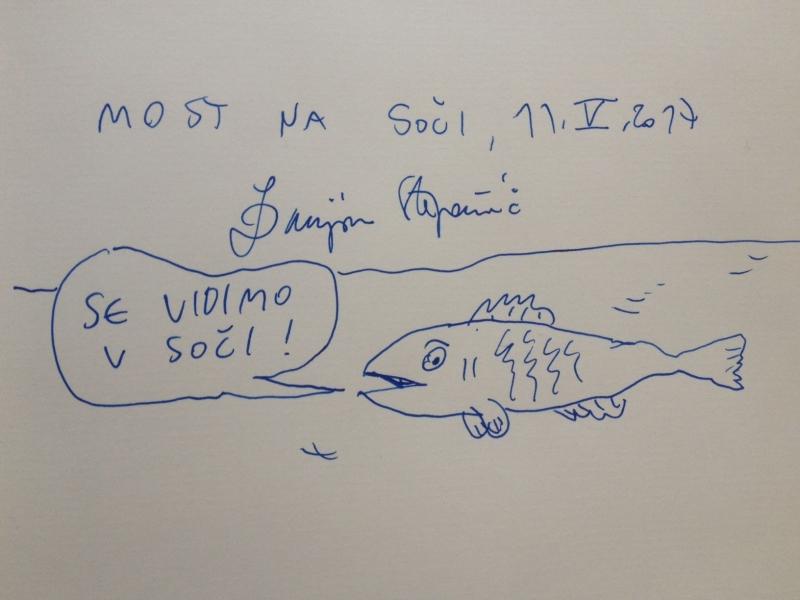 MOST NA SOČI, 11. V. 2017
Damijan Stepančič
SE VIDIMO
V SOČI!